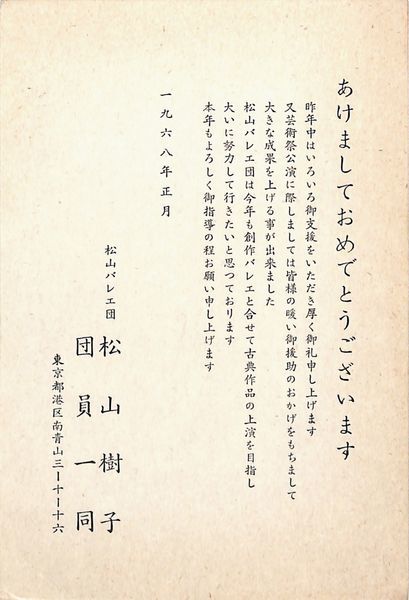 あけましておめでとうございます
昨年中はいろいろ御支援をいただき厚く御礼申し上げます
又芸術祭公演に際しましては皆様の暖い御援助のおかげをもちまして
大きな成果を上げる事が出来ました
松山バレエ団は今年も創作バレエと合せて古典作品の上演を目指し
大いに努力して行きたいと思つております
本年もよろしく御指導の程お願い申し上げます
一九六八年正月
松山バレエ団
松山樹子
団員一同
東京都港区南青山三ー十ー十六